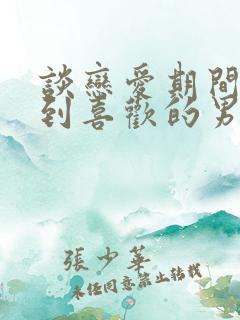 談戀愛期間
到喜歡的男
張少華
未經同意禁止轉載